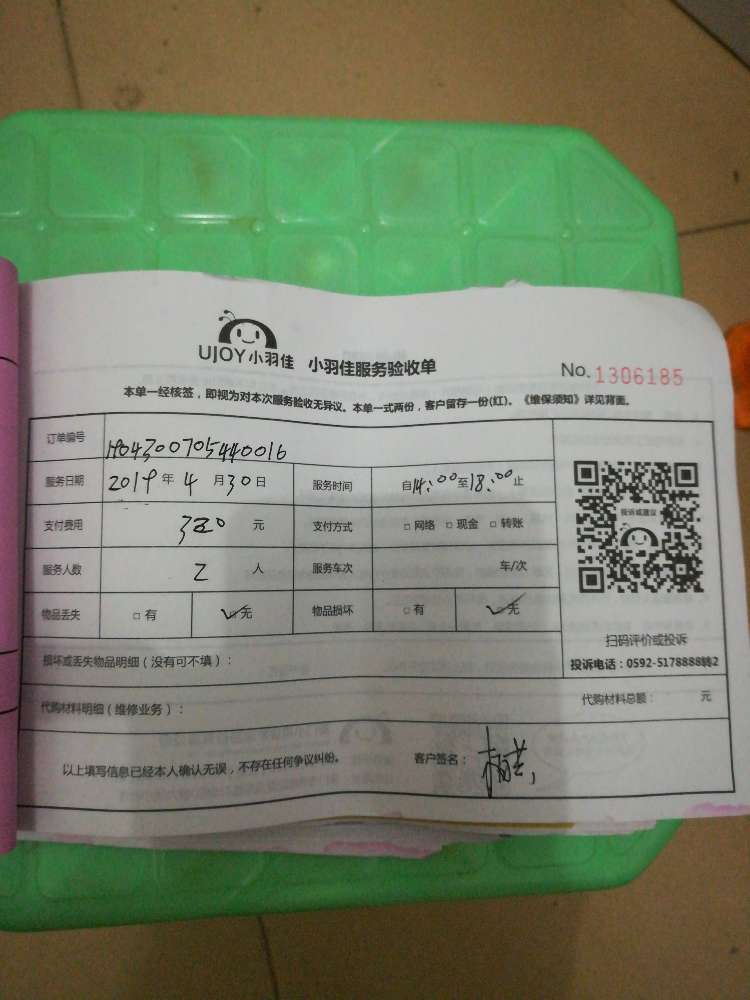 UJOY小羽佳 小羽佳服务验收单
No. 1306185
本单一经核签，即视为对本次服务验收无异议。本单一式两份，客户留存一份(红)。《维保须知》详见背面。
订单编号 190430070544​0016
服务日期 2019年 4 月 30 日 服务时间 自14:00至18:00止
支付费用 320 元 支付方式 □ 网络 □ 现金 □ 转账
服务人数 2 人 服务车次 车/次
物品丢失 □ 有 ☑ 无 物品损坏 □ 有 ☑ 无
投诉或建议
扫码评价或投诉
投诉电话：0592-5178888转2
损坏或丢失物品明细（没有可不填）：
代购材料明细（维修业务）： 代购材料总额： 元
以上填写信息已经本人确认无误，不存在任何争议纠纷。 客户签名：